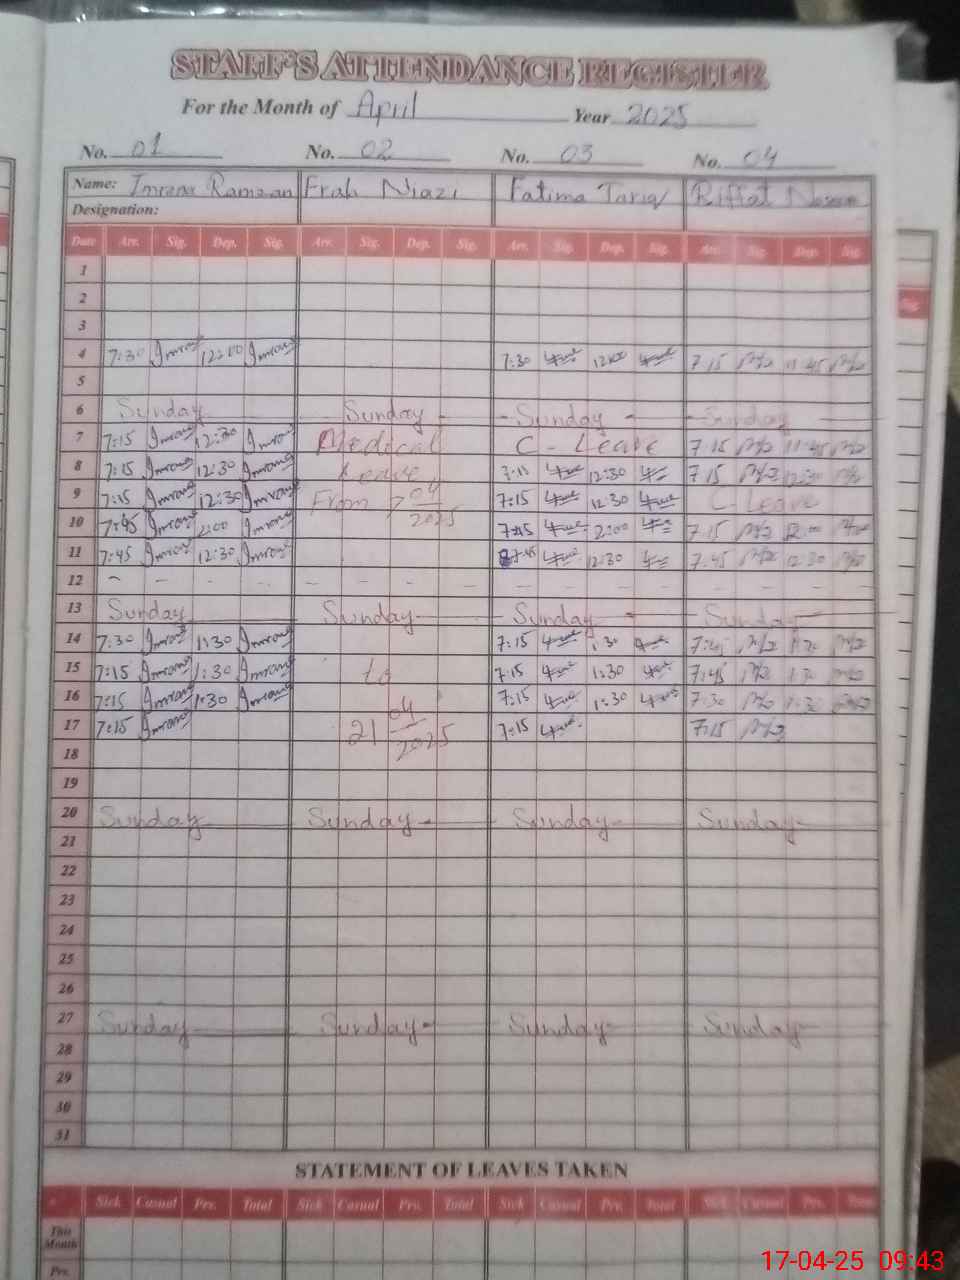 STAFF'S ATTENDANCE REGISTER
For the Month of April Year 2025
No. 01 No. 02 No. 03 No. 04
Name: Imrana Ramzan Frah Niazi Fatima Tariq Riffat
Designation:
Date Arr. Sig. Dep. Sig. Arr. Sig. Dep. Sig. Arr. Sig. Dep. Sig. Arr. Sig. Dep. Sig.
1
2
3
4 7:30 Imrana 12:00 Imrana 7:30 12:00 7:15 11:45
5
6 Sunday Sunday Sunday Sunday
7 7:15 Imrana 12:30 Imrana Medical C-Leave 7:15 11:45
8 7:15 Imrana 12:30 Imrana Leave 7:15 12:30 7:15 12:30
9 7:15 Imrana 12:30 Imrana From 7 04 2025 7:15 12:30 C-Leave
10 7:45 Imrana 2:00 Imrana 7:45 2:00 7:15 12:00
11 7:45 Imrana 12:30 Imrana 7:45 12:30 7:45 12:30
12 - - - - - - - - - - - - - - -
13 Sunday Sunday Sunday Sunday
14 7:30 Imrana 1:30 Imrana 7:15 1:30 7:45
15 7:15 Imrana 1:30 Imrana to 7:15 1:30 7:45 1:30
16 7:15 Imrana 1:30 Imrana 7:15 1:30 7:30 1:30
17 7:15 Imrana 21 04 2025 7:15 7:15
18
19
20 Sunday Sunday Sunday Sunday
21
22
23
24
25
26
27 Sunday Sunday Sunday Sunday
28
29
30
31
STATEMENT OF LEAVES TAKEN
Sick Casual Prv. Total Sick Casual Prv. Total Sick Casual Prv. Total Sick Casual Prv. Total
This
Month
Prv.
17-04-25 09:43